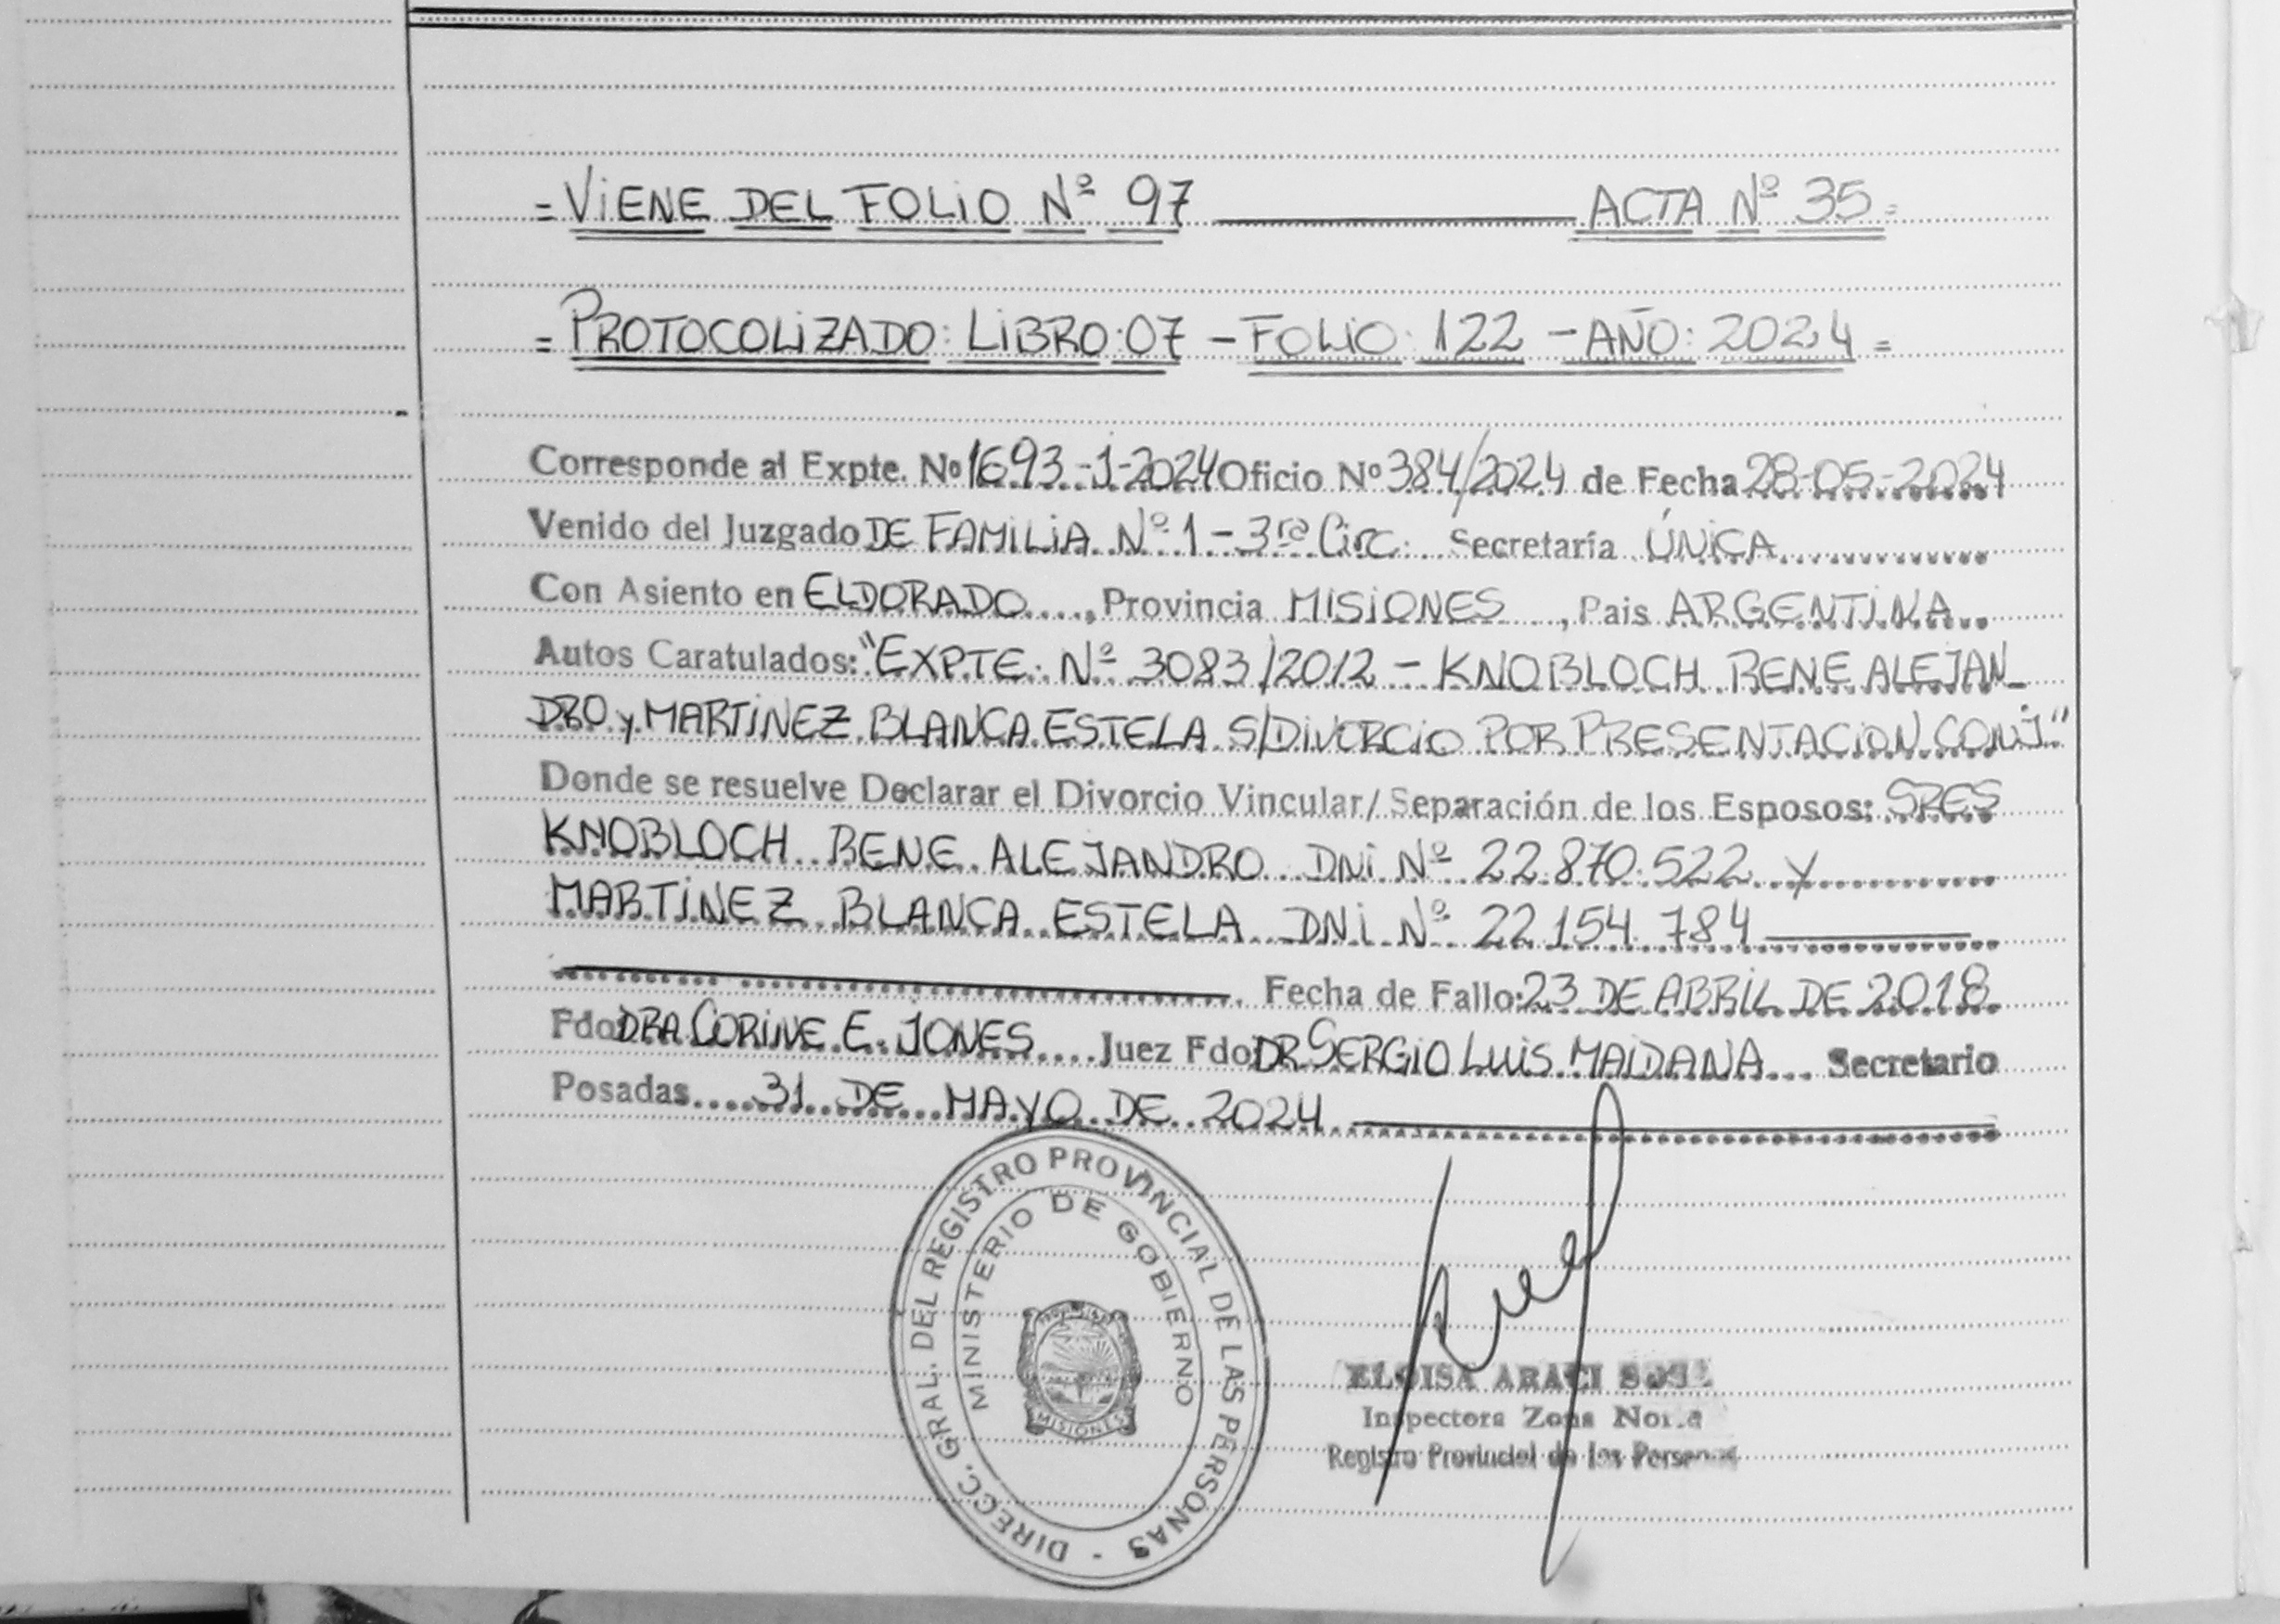 = VIENE DEL FOLIO Nº 97 ACTA Nº 35 =
= PROTOCOLIZADO: LIBRO: 07 - FOLIO: 122 - AÑO: 2024 =
Corresponde al Expte. Nº 1693-J-2024 Oficio Nº 384/2024 de Fecha 28-05-2024
Venido del Juzgado DE FAMILIA Nº 1 - 3ra Circ. Secretaría ÚNICA
Con Asiento en ELDORADO, Provincia MISIONES, Pais ARGENTINA
Autos Caratulados: "EXPTE. Nº 3083/2012 - KNOBLOCH RENE ALEJAN_
DRO y MARTINEZ BLANCA ESTELA S/DIVORCIO POR PRESENTACION CONJ."
Donde se resuelve Declarar el Divorcio Vincular/Separación de los Esposos: SRES
KNOBLOCH RENE ALEJANDRO DNI Nº 22.870.522 y
MARTINEZ BLANCA ESTELA DNI Nº 22.154.784
Fecha de Fallo: 23 DE ABRIL DE 2018
Fdo: DRA CORINE E. JONES Juez Fdo: DR SERGIO LUIS MAIDANA Secretario
Posadas 31 DE MAYO DE 2024
DIRECC. GRAL. DEL REGISTRO PROVINCIAL DE LAS PERSONAS -
MINISTERIO DE GOBIERNO
MISIONES
ELOISA ARACI
Inspectora Zona Norte
Registro Provincial de las Personas